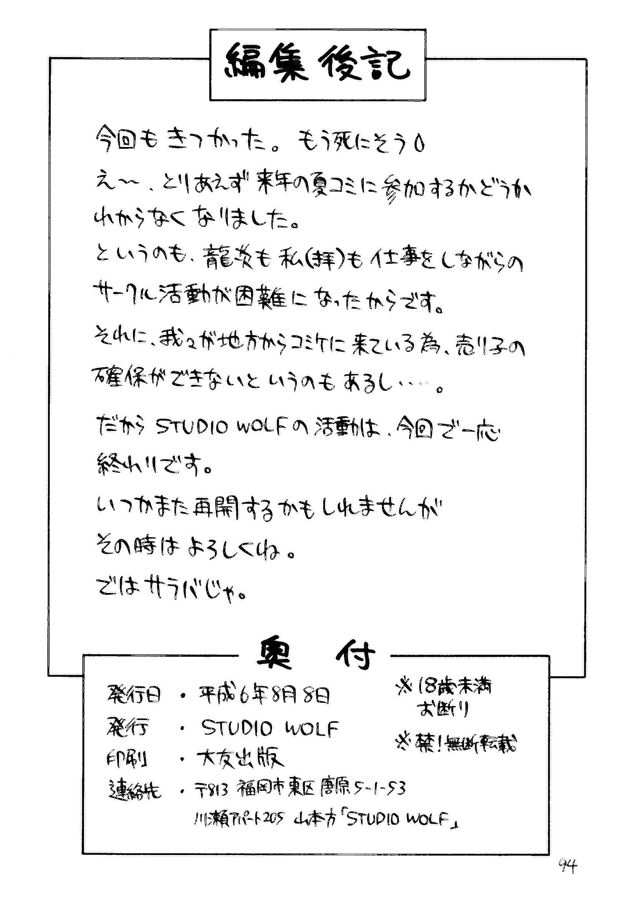 編集後記
今回もきつかった。もう死にそう
え〜、とりあえず来年の夏コミに参加するかどうか
わからなくなりました。
というのも、龍炎も私(拝)も仕事をしながらの
サークル活動が困難になったからです。
それに、我々が地方からコミケに来ている為、売り子の
確保ができないというのもあるし……。
だから STUDIO WOLFの活動は、今回で一応
終わりです。
いつかまた再開するかもしれませんが
その時はよろしくね。
ではサラバじゃ。
奥付
発行日・平成6年8月8日
発行・STUDIO WOLF
印刷・大友出版
連絡先・〒813 福岡市東区唐原5-1-53
川瀬アパート205 山本方「STUDIO WOLF」
※18歳未満
お断り
※禁!無断転載
94